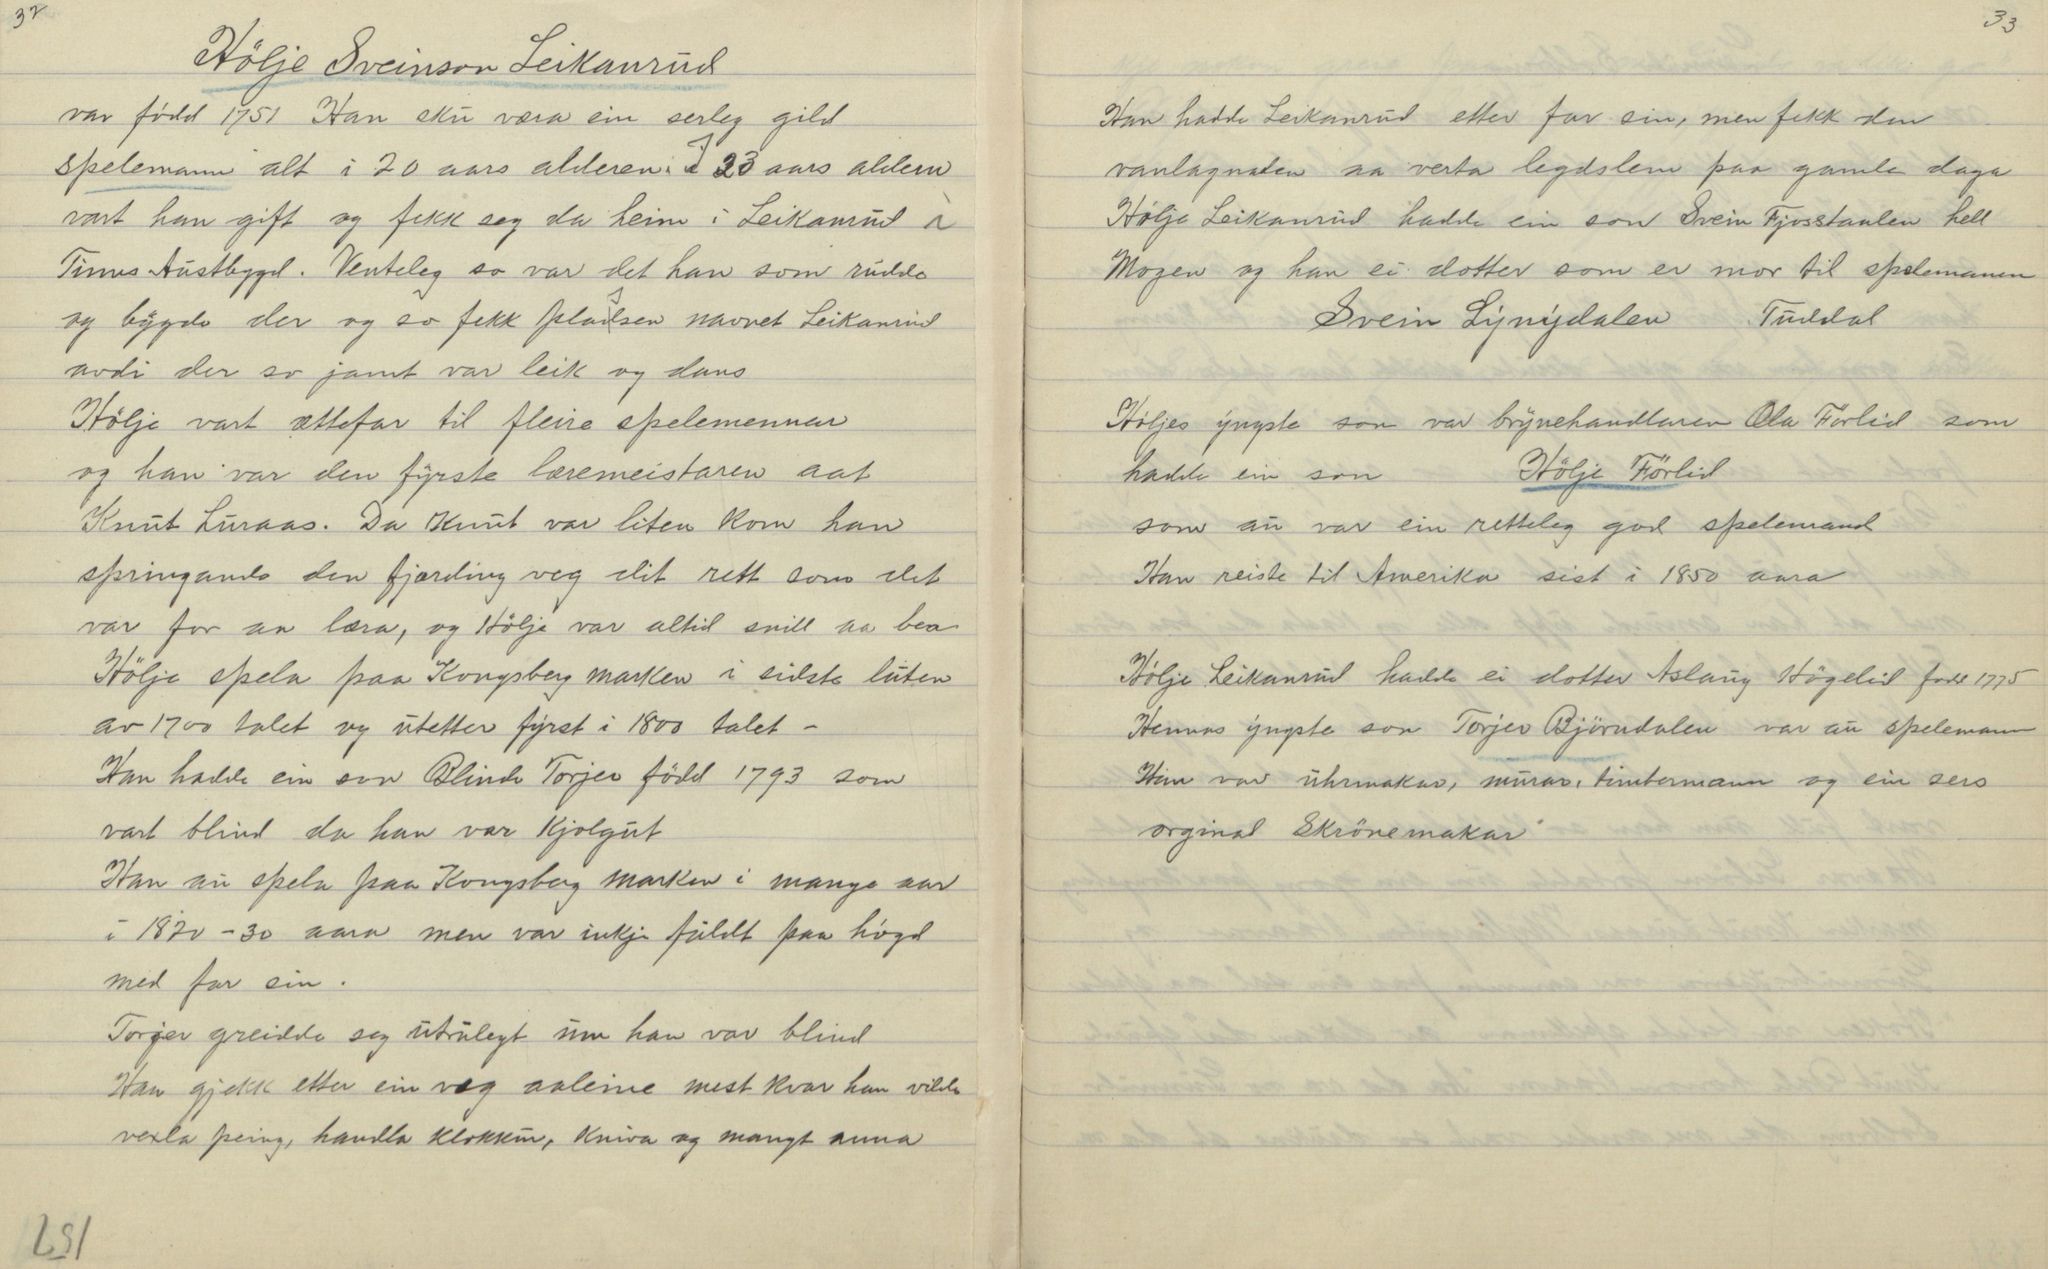 32
Hölje Sveinson Leikanrud
var född 1751 Han sku væra ein serleg gild
spelemann alt i 20 aars alderen. I 23 aars aldern
vart han gift og fekk seg da heim i Leikanrud i
Tinns Austbygd. Venteleg so var det han som rudde
og bygde der og so fekk pladsen navnet Leikanrud
avdi der so jamt var leik og dans
Hölje vart ættefar til fleire spelemennar
og han var den fyrste læremeistaren aat
Knut Luraas. Da Knut var liten kom han
springande den fjærding veg dit rett som det
var for aa læra, og Hölje var altid snill aa bea
Hölje spela paa Kongsberg marken i sidste luten
av 1700 talet og utetter fyrst i 1800 talet -
Han hadde ein son Blinde Torjer född 1793 som
vart blind da han var kjolgut
Han au spela paa Kongsberg marken i mange aar
i 1820-30 aara men var inkje fuldt paa högd
med far sin.
Torjer greidde seg utrulegt um han var blind
Han gjekk etter ein veg aaleine mest kvar han vilde
vexla peing, handla klokkur, kniva og mangt anna
157
33
Han hadde Leikanrud etter far sin, men fekk den
vanlagnaden aa verta legdslem paa gamle daga
Hölje Leikanrud hadde ein son Svein Fjosstaulen hell
Mogen og han ei dotter som er mor til spelemanen
Svein Lyngdalen Tuddal
Höljes yngste son var brynehandlaren Ola Förlid som
hadde ein son Hölje Förlid
som au var ein retteleg god spelemand
Han reiste til Amerika sist i 1850 aara
Hölje Leikanrud hadde ei dotter Aslaug Högelid fodd 1775
Hennas yngste son Torjer Björndalen var au spelemann
Han var uhrmakar, murar, timtermann og ein sers
orginal Skrönemakar